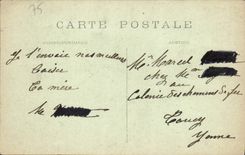 75
CARTE POSTALE
CORRESPONDANCE
ADRESSE
Je t'envoie nos meilleurs
Baiser
Ta mère
Me Marcel
chez Me
au
Colonie des chemins de fer
Toucy
Yonne